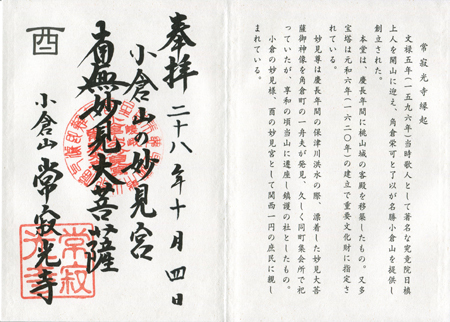 常寂光寺縁起
文禄五年(一五九六)当時歌人として著名な究竟院日禛
上人を開山に迎え、角倉栄可と了以が名勝小倉山を提供し
創立された。
本堂は、慶長年間に桃山城の客殿を移築したもの。又多
宝塔は元和六年(一六二〇年)の建立で重要文化財に指定さ
れている。
妙見尊は慶長年間の保津川洪水の際、漂着した妙見大菩
薩御神像を角倉町の一舟夫が発見、久しく同町集会所で祀
っていたが、享和の頃当山に遷座し鎮護の社としたもの。
小倉の妙見様、酉の妙見宮として関西一円の庶民に親し
まれている。
奉拝 二十八年十月四日
小倉山の妙見宮
南無妙見大菩薩
酉
小倉山 常寂光寺
常寂光寺